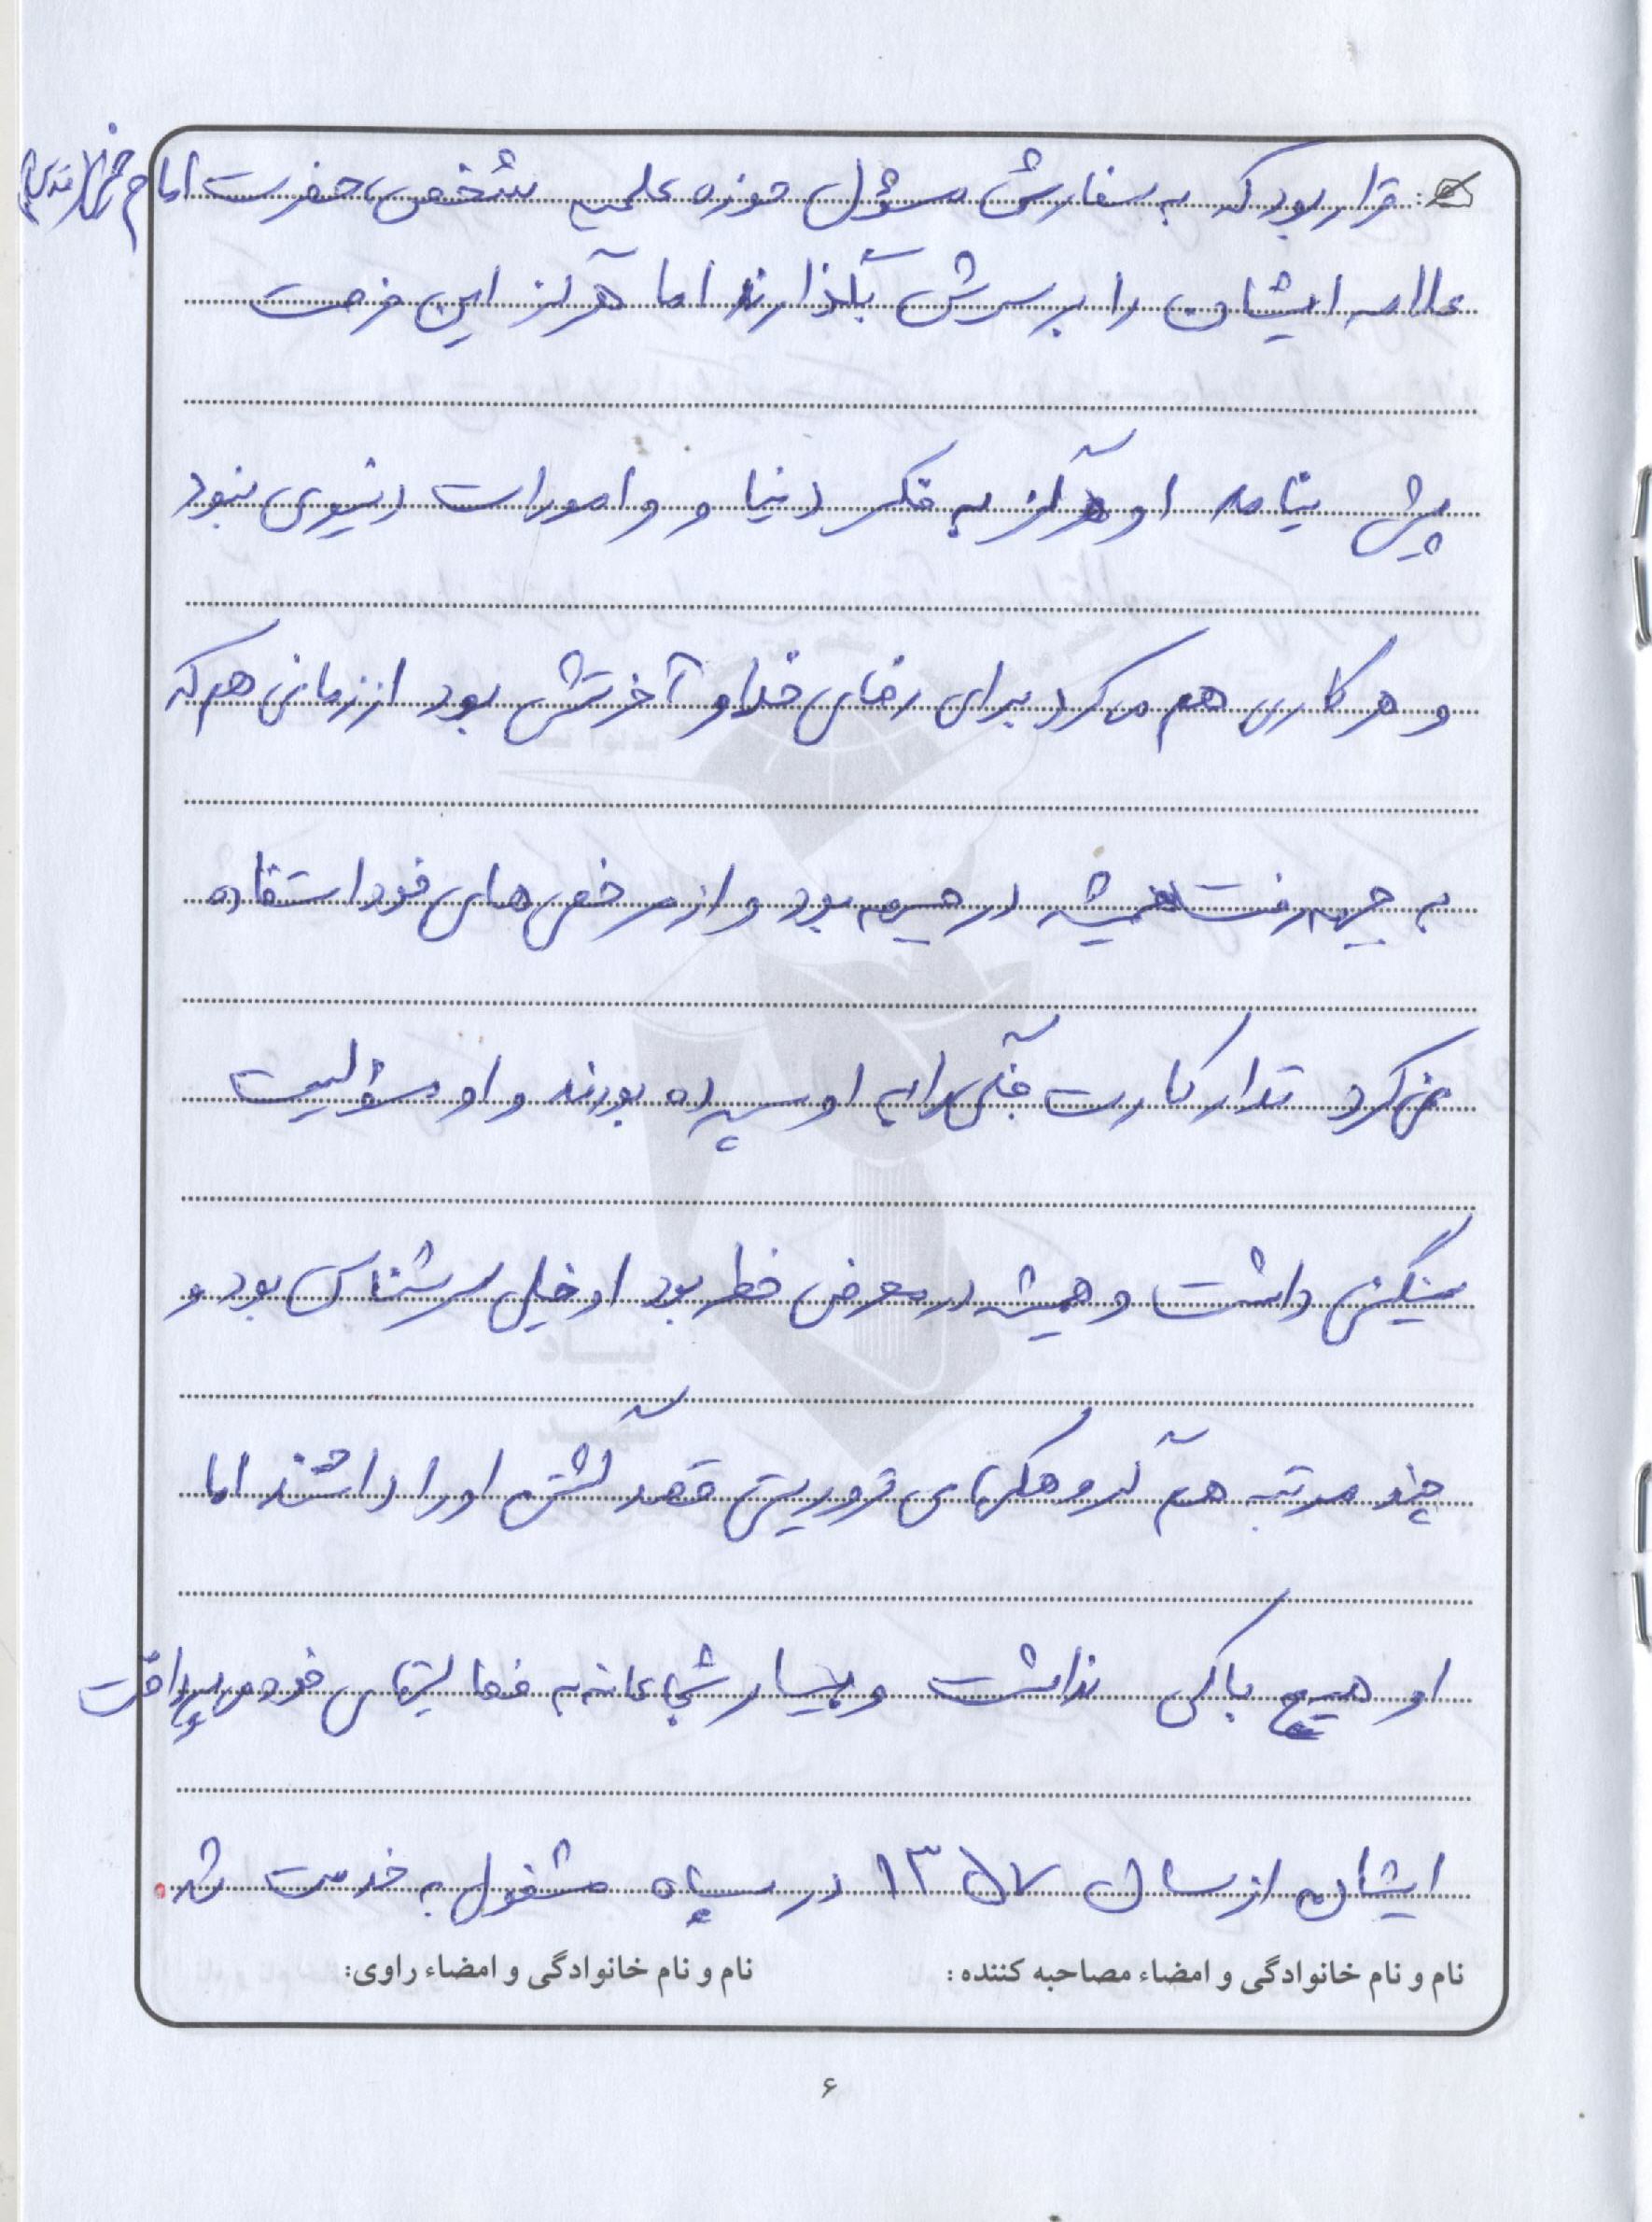 قرار بود که به سفارش مسؤل حوزه علمیه شخص حضرت امام خمینی
عمامه ایشان را بر سرش بگذارند اما هرگز این فرصت
پیش نیامد او هرگز به فکر دنیا و و امورات دنیوی نبود
و هر کاری هم می کرد برای رضای خدا و آخرتش بود از زمانی هم که
به جبهه رفت همیشه در جبهه بود و از مرخصی های خود استفاده
نمی کرد تدارکارت جنگی را به او سپرده بودند و او مسؤلیت
سنگینی داشت و همیشه در معرض خطر بود او خیلی سرشناس بود و
چند مرتبه هم گروهکهای تروریستی قصد کشتن او را داشتند اما
او هیچ باکی نداشت و بسیار شجاعانه به فعالیتهای خود می پرداخت
ایشان از سال ۱۳۵۷ در سپاه مشغول به خدمت شد.
نام و نام خانوادگی و امضاء مصاحبه کننده : نام و نام خانوادگی و امضاء راوی:
۶